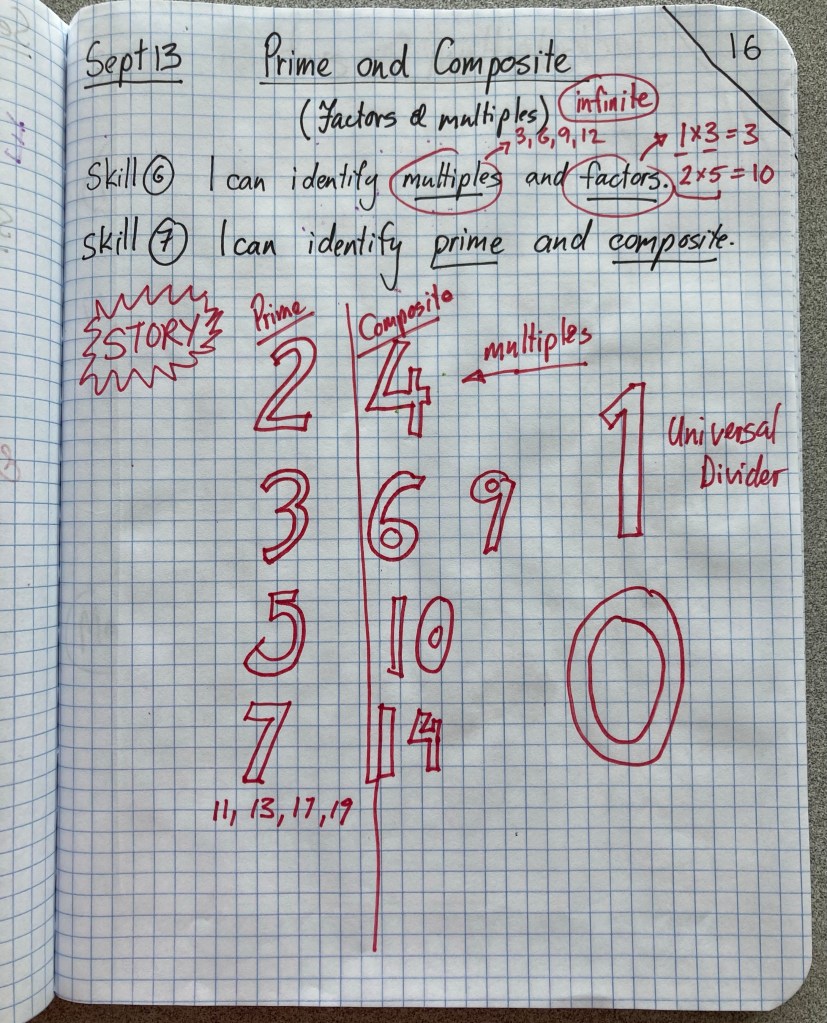 16
Sept 13 Prime and Composite
(Factors & multiples) infinite
3, 6, 9, 12 1x3=3
Skill 6 I can identify multiples and factors. 2x5=10
Skill 7 I can identify prime and composite.
STORY Prime Composite
2 4 multiples
1 Universal
Divider
3 6 9
5 10
0
7 14
11, 13, 17, 19